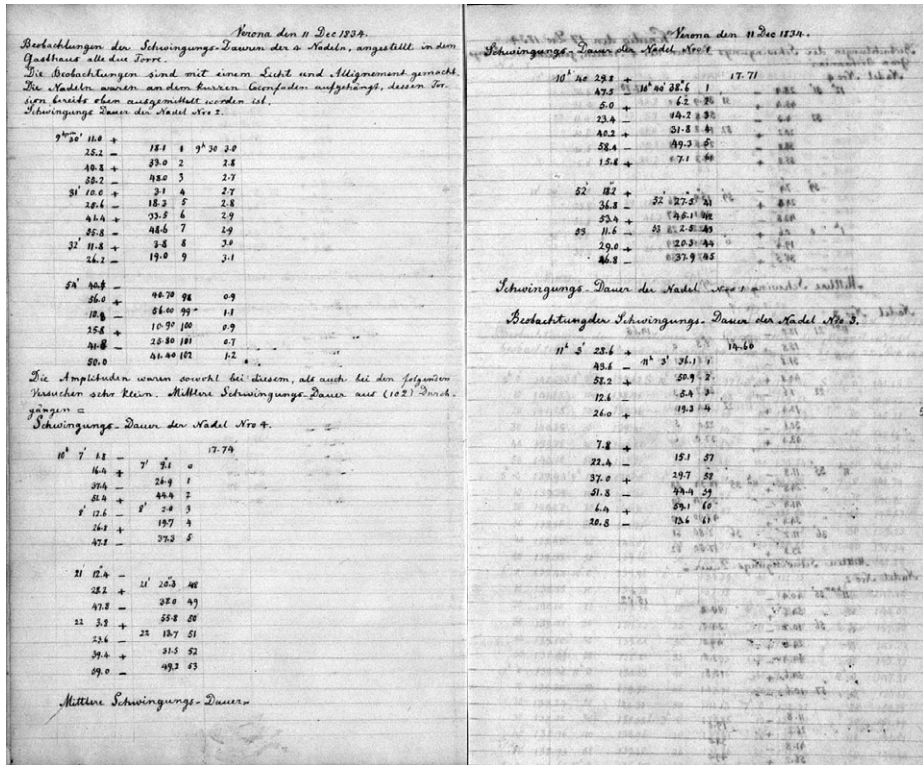 Verona den 11 Dec 1834.
Beobachtungen der Schwingungs-Dauren der 4 Nadeln, angestellt in dem
Gasthaus alle due Torre.
Die Beobachtungen sind mit einem Licht und Allignement gemacht.
Die Nadeln waren an dem kurzen Coconfaden aufgehängt, dessen Tor-
sion bereits oben ausgemittelt worden ist.
Schwingungs Dauer der Nadel Nro 2.
9h 30' 11.0 +
25.2 - 18.1 1 9h 30 3.0
40.8 + 33.0 2 2.8
55.2 - 48.0 3 2.7
31' 10.0 + 3.1 4 2.7
25.6 - 18.3 5 2.8
41.4 + 33.5 6 2.9
55.8 - 48.6 7 2.9
32' 11.8 + 3.8 8 3.0
26.2 - 19.0 9 3.1
54' 40.8 -
56.0 + 40.70 98 0.9
10.8 - 56.00 99 1.1
25.8 + 10.90 100 0.9
41.8 - 25.80 101 0.7
50.0 41.40 102 1.2
Die Amplituden waren sowohl bei diesem, als auch bei den folgenden
Versuchen sehr klein. Mittlere Schwingungs-Dauer aus (102) Durch-
gängen =
Schwingungs-Dauer der Nadel Nro 4.
10h 7' 1.8 - 17.74
16.4 + 7' 9.1 0
37.4 - 26.9 1
51.4 + 44.4 2
8' 17.6 - 8' 2.0 3
26.8 + 19.7 4
47.8 - 37.3 5
21 12.4 -
28.2 + 21' 20.3 48
47.8 - 38.0 49
22 3.8 + 55.8 50
23.6 - 22 13.7 51
39.4 + 31.5 52
59.0 - 49.2 53
Mittlere Schwingungs-Dauer=
Verona den 11 Dec 1834.
Schwingungs-Dauer der Nadel Nro 1
10h 40 29.8 + 17.71
47.5 - 10h 40' 38.6 1
5.0 + 6.2 2
23.4 - 14.2 3
40.2 + 31.8 4
58.4 - 49.3 5
15.8 + 7.1 6
52' 18.2 +
36.8 - 52' 27.5 41
53.4 + 45.1 42
53 11.6 - 53 2.5 43
29.0 + 20.3 44
46.8 - 37.9 45
Schwingungs-Dauer der Nadel Nro 1 =
Beobachtung der Schwingungs-Dauer der Nadel Nro 3.
11h 3' 28.6 + 14.60
43.6 - 11h 3' 36.1 1
58.2 + 50.9 2
12.6 - 5.4 3
26.0 + 19.3 4
7.8 +
22.4 - 15.1 57
37.0 + 29.7 58
51.8 - 44.4 59
6.4 + 59.1 60
20.8 - 13.6 61